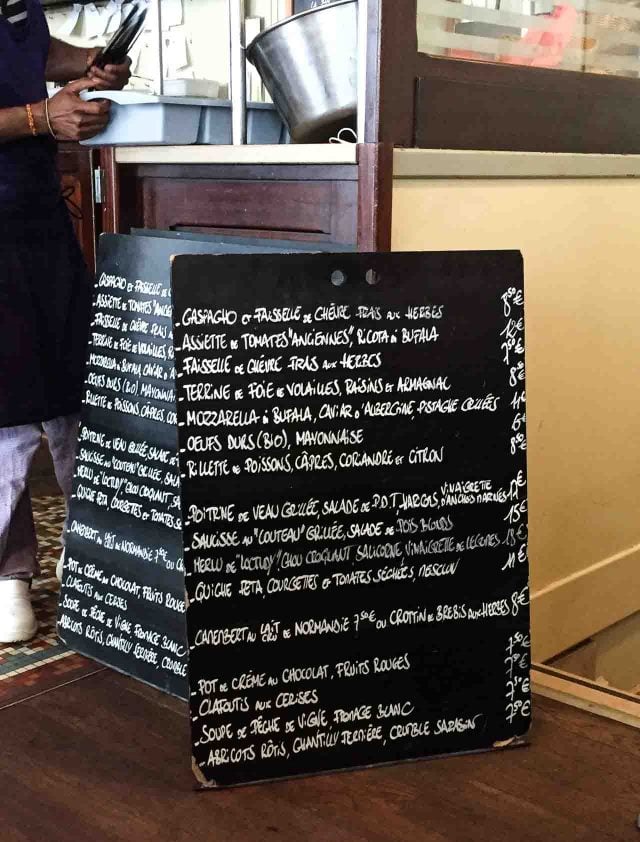 - GASPACHO ET FAISSELLE DE CHÈVRE FRAIS AUX HERBES 8,50€
- ASSIETTE DE TOMATES "ANCIENNES", RICOTA DI BUFALA 12€
- FAISSELLE DE CHÈVRE FRAS AUX HERBES 7,50€
- TERRINE DE FOIE DE VOLAILLES, RAISINS ET ARMAGNAC 8€
- MOZZARELLA DI BUFALA, CAVIAR D'AUBERGINE, PISTACHE GRILLÉES 11€
- OEUFS DURS (BIO), MAYONNAISE 6€
- RILLETTE DE POISSONS, CÂPRES, CORIANDRE ET CITRON 8,50
- POITRINE DE VEAU GRILLÉE, SALADE DE P.D.T, VINAIGRETTE D'ANCHES 12€
- SAUCISSE AU "COUTEAU" GRILLÉE, SALADE DE POIS BLONDS 15€
- MERLU DE "LOCTUDY" CHOU CROQUANT, SALICORNE, VINAIGRETTE DE LÉGUMES
- QUICHE FETA, COURGETTES ET TOMATES SÉCHÉES, MESCLUN 11€
- CAMENBERT AU LAIT CRU DE NORMANDIE 7,50€ OU CROTTIN DE BREBIS AUX HERBES 8€
- POT DE CRÈME AU CHOCOLAT, FRUITS ROUGES 7,50€
- CLAFOUTIS AUX CERISES 7,50€
- SOUPE DE PÊCHE DE VIGNE, FROMAGE BLANC 7,50€
- ABRICOTS RÔTIS, CHANTILLY CRUMBLE SARASIN 7,50€
- GASPACHO ET FAISSELLE DE C
- ASSIETTE DE TOMATES "ANCIE
- FAISSELLE DE CHÈVRE FRAIS
- TERRINE DE FOIE DE VOLAILLES, R
MOZZARELLA DI BUFALA, CAVIAR D'A
- OEUFS DURS (BIO), MAYONNA
- RILLETTE DE POISSONS, CÂPRES, CO
- POITRINE DE VEAU GRILLÉE, SALADE
- SAUCISSE AU "COUTEAU" GRILLÉE, SALA
- MERLU DE "LOCTUDY" CHOU CROQUANT, SA
- QUICHE FETA, COURGETTES ET TOMATES S
- CAMENBERT AU LAIT CRU DE NORMANDIE 7,50€ OU C
- POT DE CRÈME AU CHOCOLAT, FRUITS ROUGE
- CLAFOUTIS AUX CERISES
- SOUPE DE PÊCHE DE VIGNE, FROMAGE BLANC
- ABRICOTS RÔTIS, CHANTILLY CRUMBLE